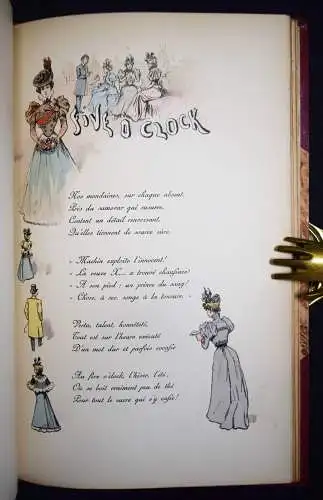 FIVE O'CLOCK
Nos mondaines, sur chaque absent,
Près du samovar qui susurre,
Content un détail ravissant,
Qu'elles tiennent de source sûre.
« Machin exploite l'innocent!
« La veuve X... a trouvé chaussure
« A son pied : un prince du sang!
« Chose, à sec, songe à la tonsure. »
Vertu, talent, honnêteté,
Tout est sur l'heure exécuté
D'un mot dur et parfois cocasse
Au five o'clock, l'hiver, l'été,
On ne boit vraiment peu de thé
Pour tout le sucre qui s'y casse!